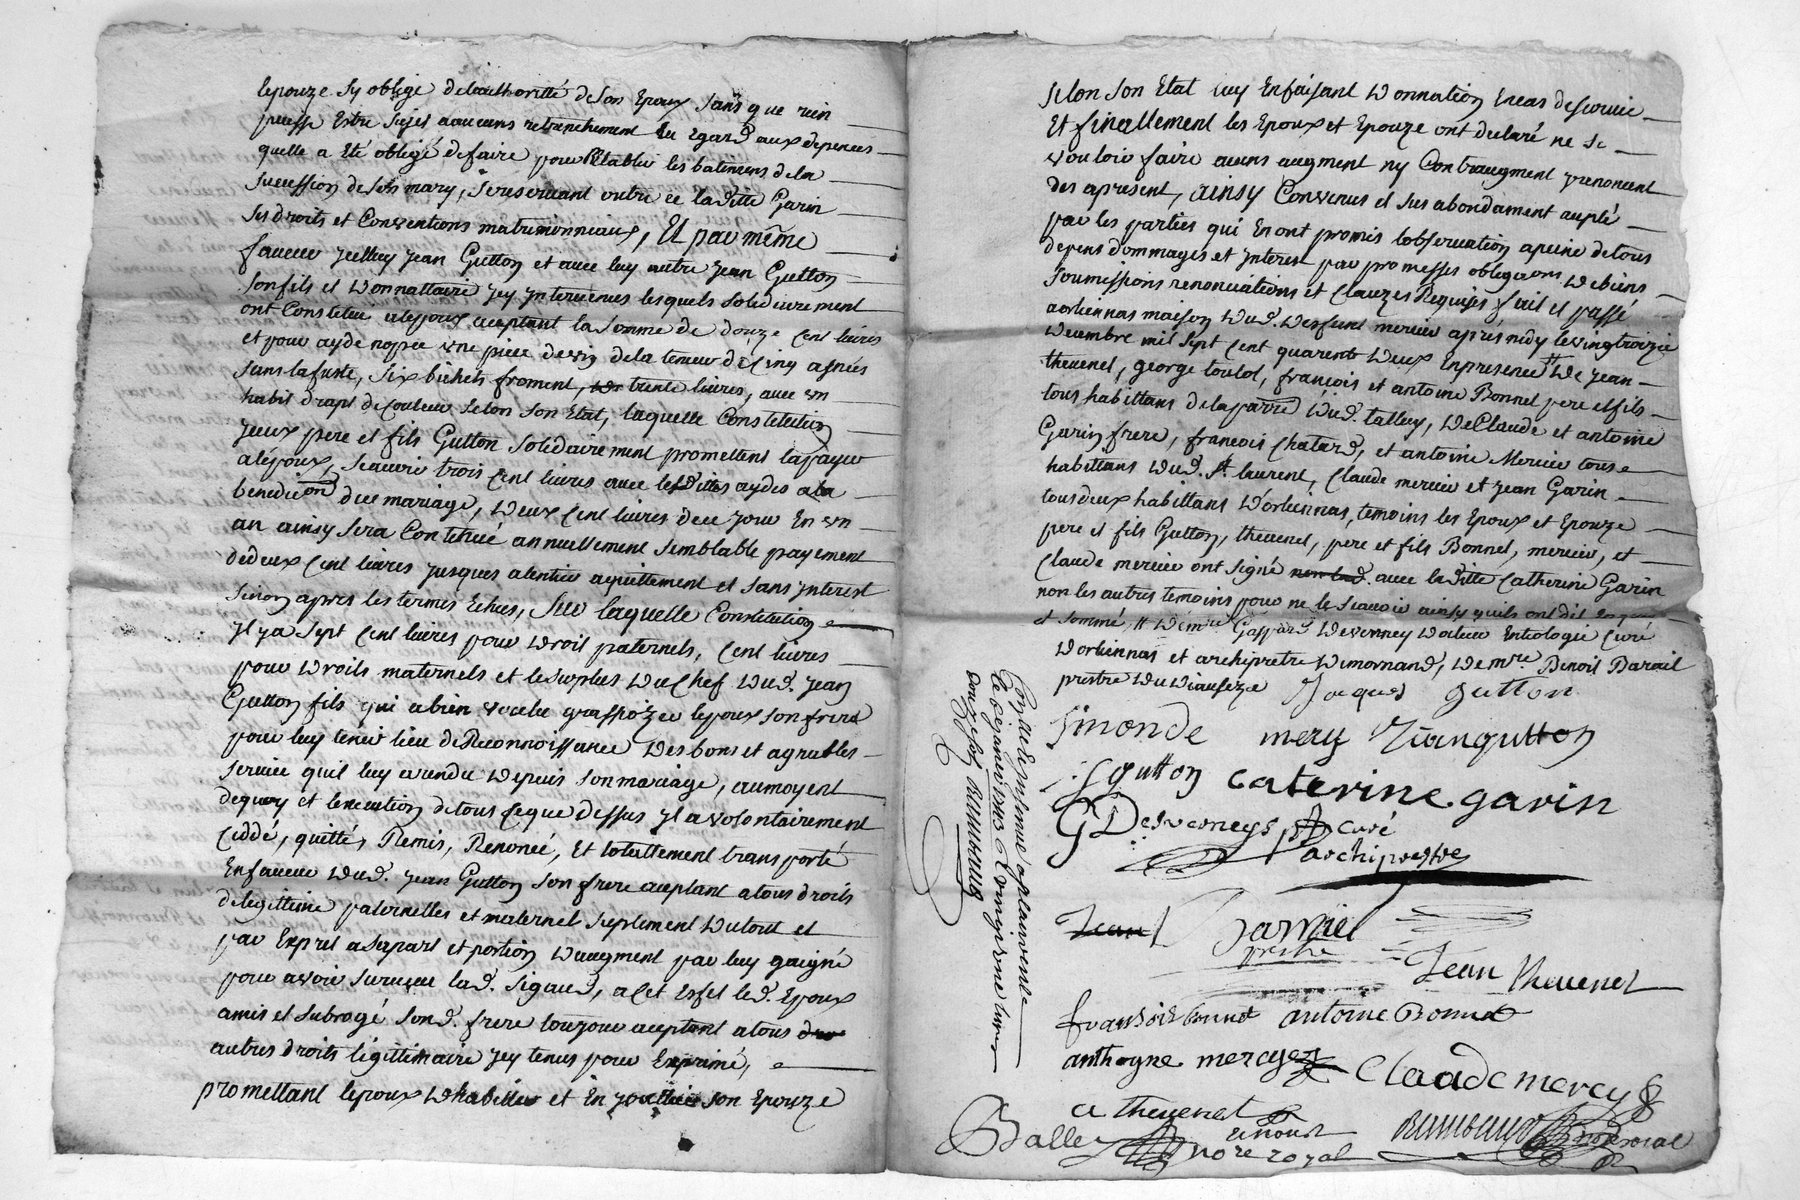 lepouze sy oblige de lauthoritté de son Epoux sans que rien
puisse Estre sujet a aucuns retranchement Eu Egard aux depences
quelle a Eté obligé de faire pour Rétablir les batiments de la
succession de son mary, se reservant outre ce laditte Garin
ses droits et Conventions matrimoniaux, Et par même
faveur jean Gutton et avec luy autre jean Gutton
son fils et donnattaire jcy jntervenus lesquels solidairement
ont Constitué alepoux aceptant la somme de douze Cent livres
et pour ayde nopce une piece de vin de la teneur de Cinq asnées
sans la fuste, six bichets froment, trente livres, avec un
habit drapt de Couleur selon son Etat, laquelle Constitution
jceux pere et fils Gutton solidairement promettent la payer
alépoux, scauoir trois Cent livres avec lesdittes aydes a la
benediction du mariage, deux Cent livres de ce jour En un
an ainsy sera Continué annuellement semblable payement
de deux Cent livres jusques alentier aquittement et sans jnterest
sinon apres les termes Echus, sur laquelle Constitution
jl y a sept Cent livres pour droit paternels, Cent livres
pour droits maternels et le surplus du Chef dud. jean
Gutton fils qui a bien voulu lepoux son frere
pour luy tenir lieu de Reconnoissance des bons et agreables
service quil luy a rendu depuis son mariage, au moyent
dequoy et lexecution de tous Ce que dessus jl a volontairement
Ceddé, quitté, Remis, Renoncé, Et totallement transporté
En faveur dud. jean Gutton son frere aceptant a tous droits
de legittime paternelles et maternel suplement dicelle et
par Exprit a sa part et portion daugment par luy gaigné
pour avoir survecu lad. sigaud, a Cet Effet led. Epoux
a mis et subrogé sond. frere toujour aceptant a tous
autres droits légittimaire jcy tenus pour Exprimé,
promettant lepoux dhabiller et En son Epouze
selon son Etat luy En faisant donnation En cas de survie
Et finallement les Epoux et Epouze ont declaré ne se
vouloir faire aucuns augment ny Contraugment y renoncent
des apresent, ainsy Convenus et sus abondament acepté
par les parties qui En ont promis lobservation a peine de tous
depens dommages et jnterest par promesses obligations de biens
soumissions renonciations et Clauzes Requises fait et passé
a orliennas maison dud. deffunt mercier aprés midy le vingt troizie
decembre mil sept Cent quarente deux En presence # de jean
thevenet, george toulot, françois et antoine Bonnet pere et fils
tous habittans de la parre dud. talluy, de Claude et antoine
Garin frere, francois Chatard, et antoine Mercier tous
habittans dud. St laurent, Claude mercier et jean Garin
tous deux habittans d'orliennas, temoins les Epoux et Epouze
pere et fils Gutton, thevenet, pere et fils Bonnet, mercier, et
Claude mercier ont signé avec laditte Catherine Garin
non les autres temoins pour ne le scavoir ainsy quils ont dit Enquis
et sommé, # de mre Gaspard desverney docteur En teologie Curé
dorliennas et archipretre de mornand, de mre Benoit
prestre du dioceze Jacques gutton
Simonde mery Jean gutton
J gutton caterine garin
G Desverneys ptre curé
archiprestre
Jean
prestre
Jean thevenet
fransois bonnet antoine Bonnet
anthoyne mercyer Claude mercyer
thevenet
Balley nore royal